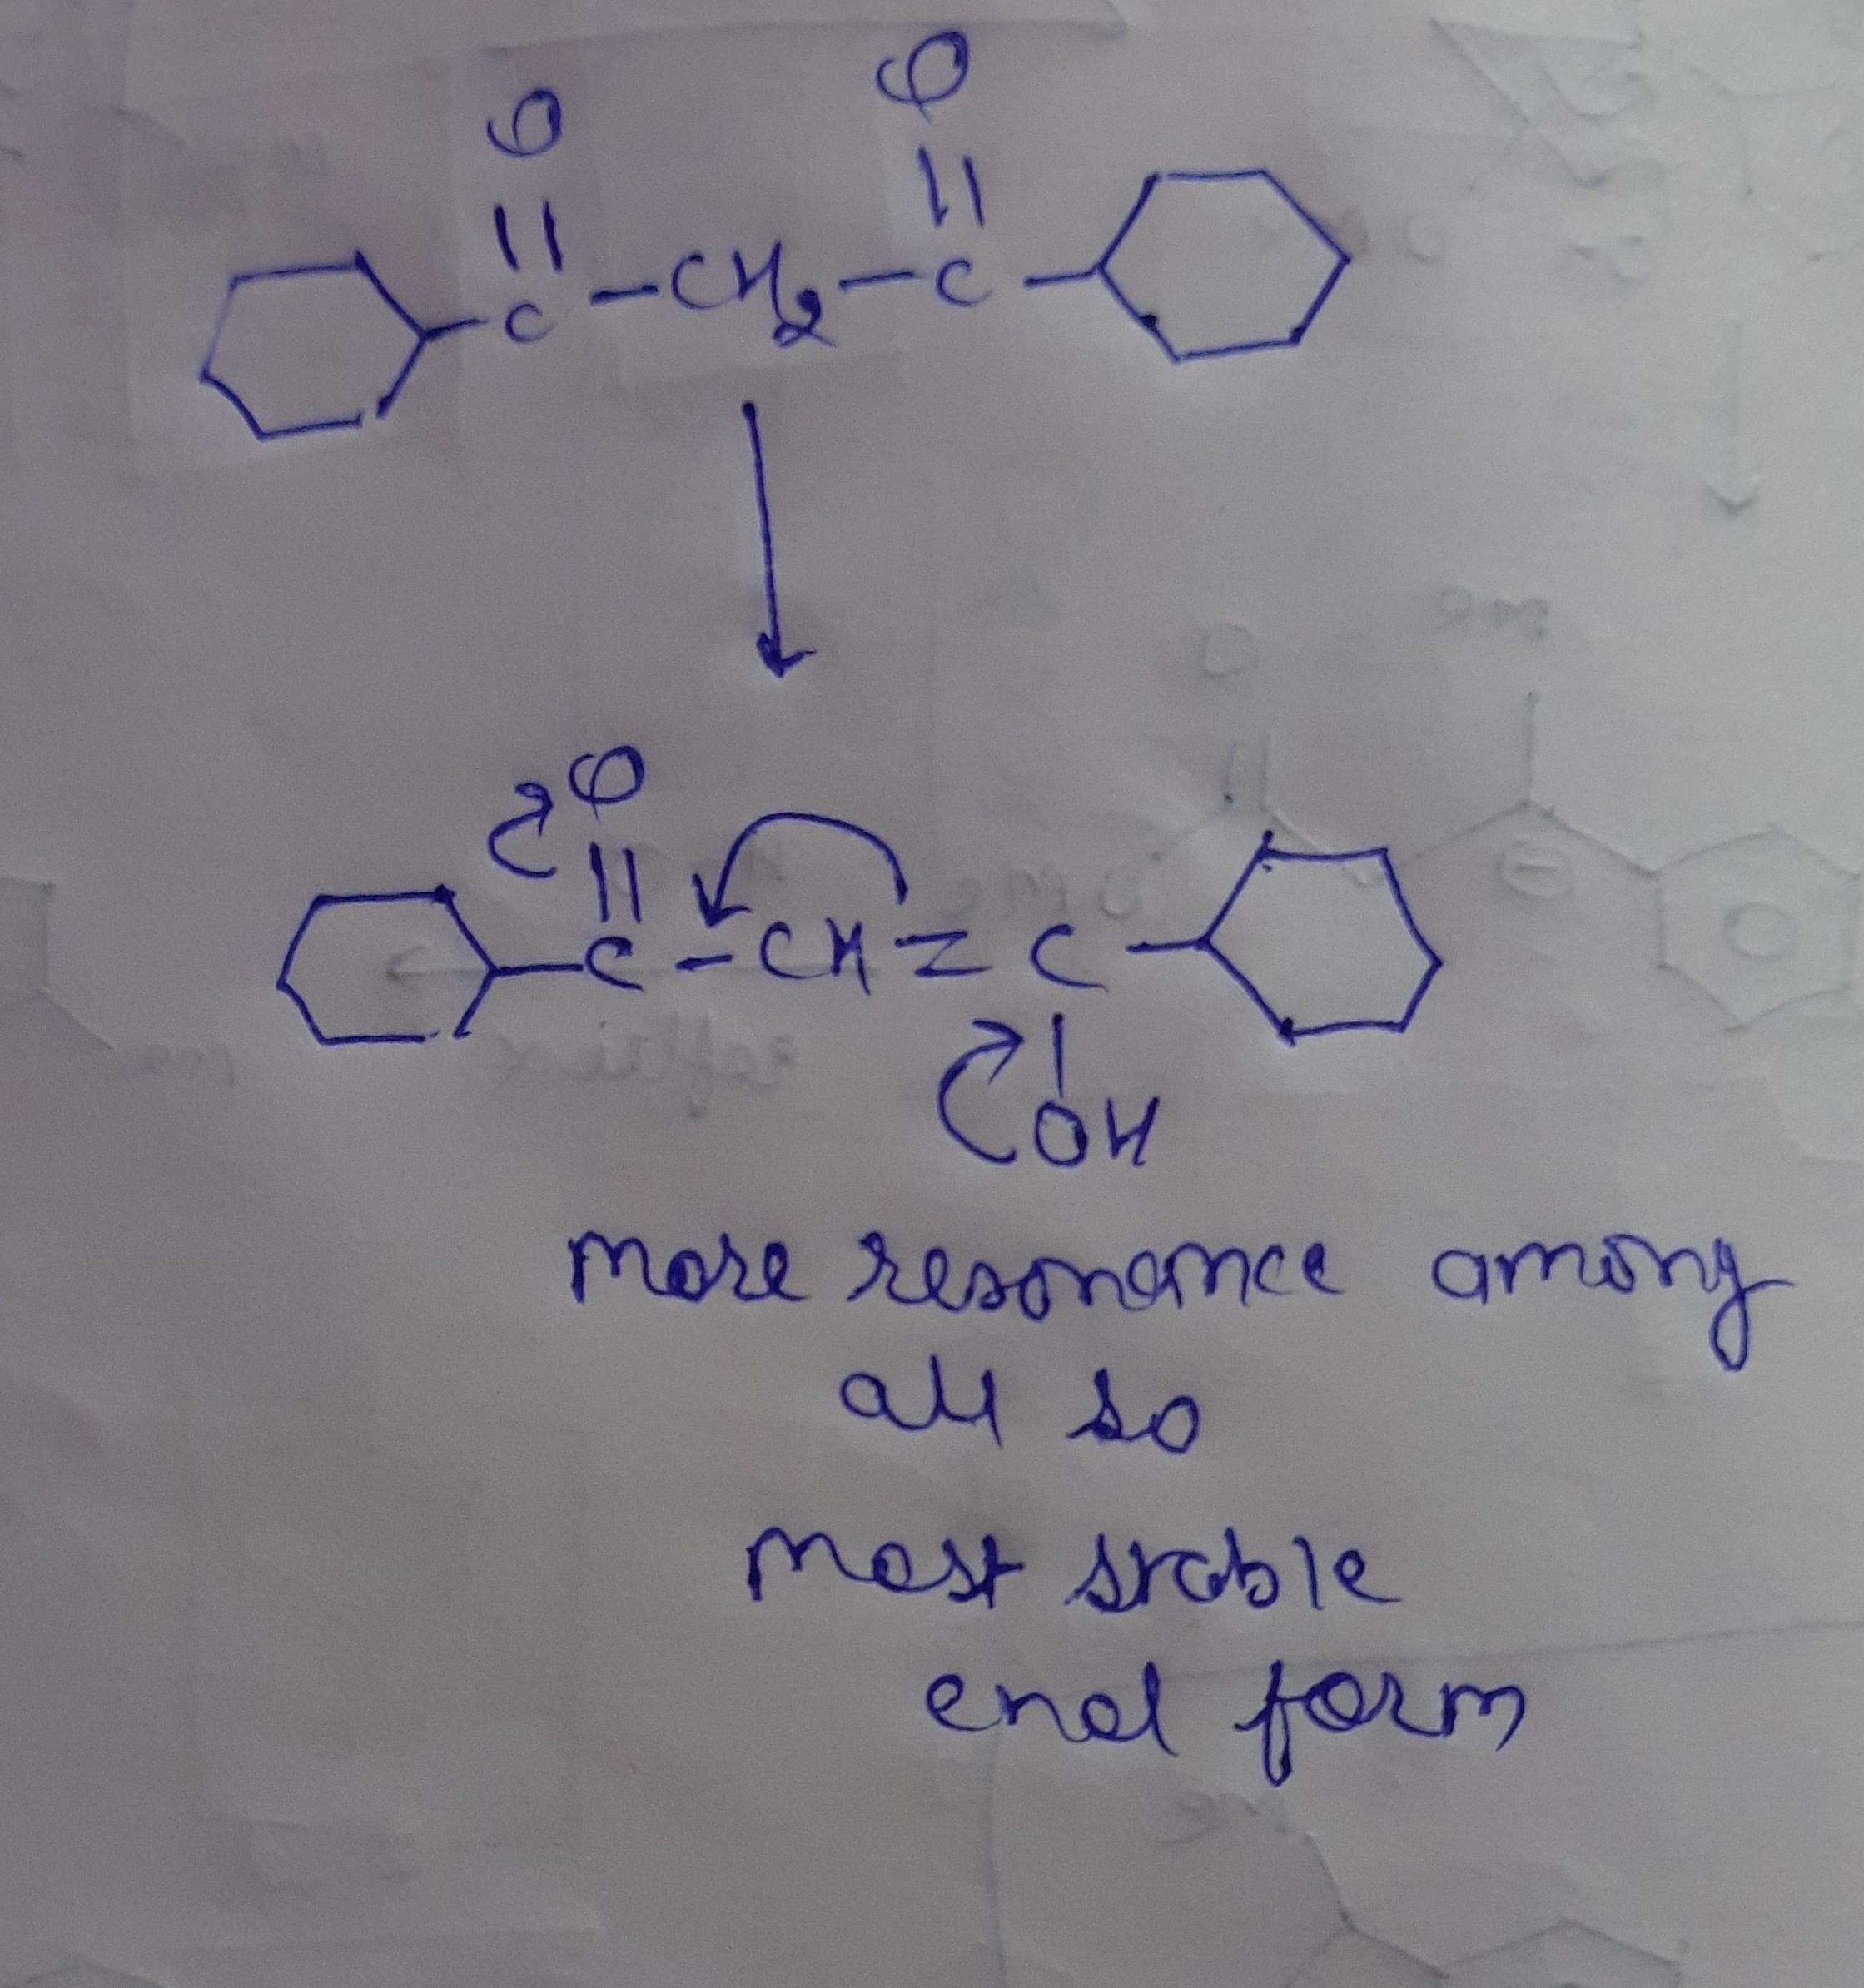 O O
|| ||
C - CH2 - C -
O
||
C - CH = C -
|
OH
more resonance among
all so
most stable
enol form